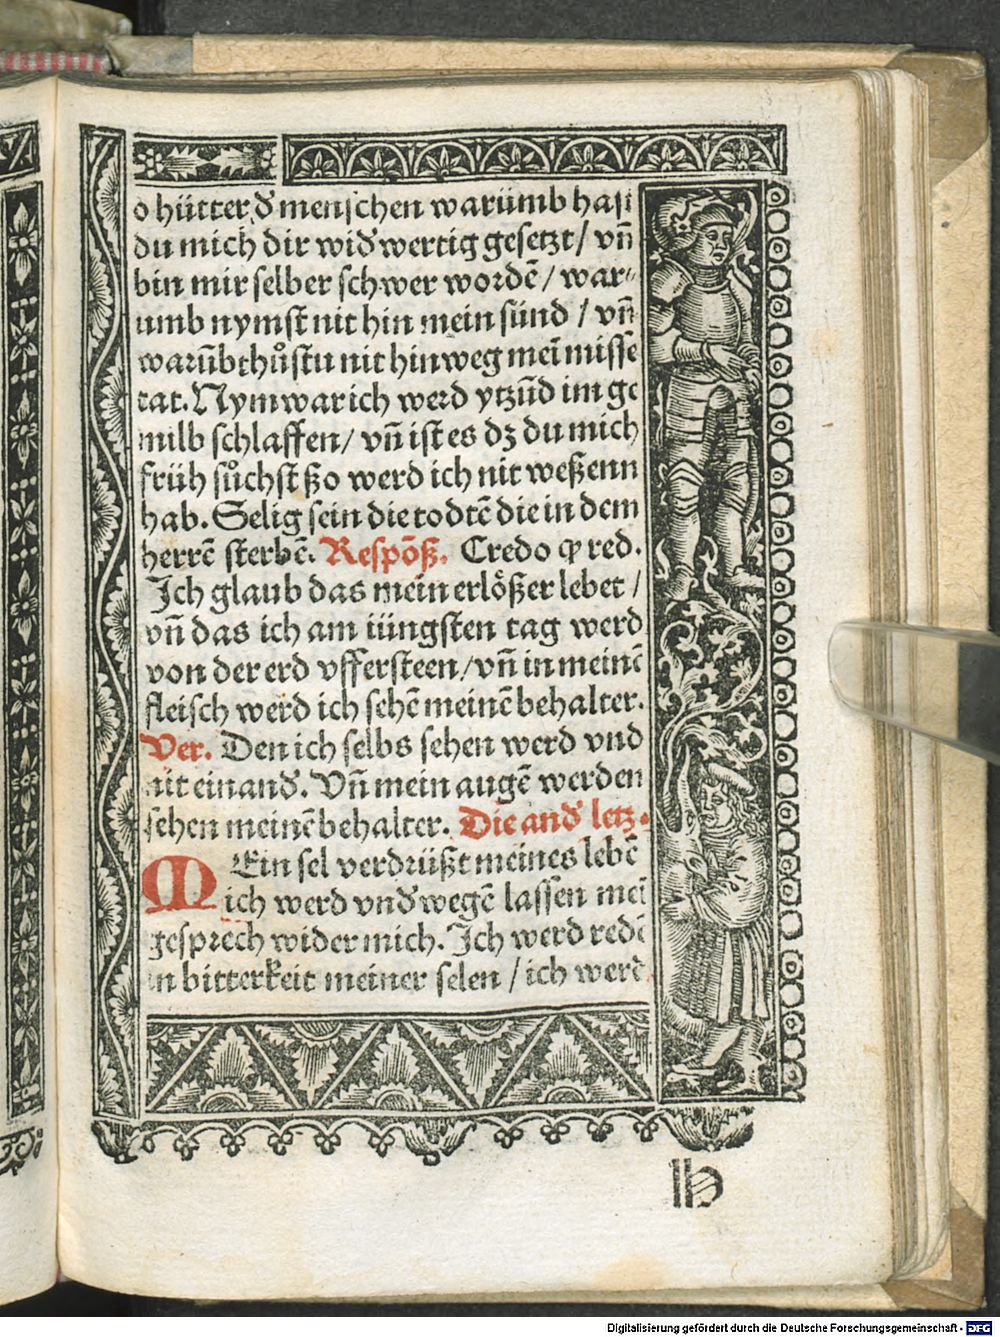 o hütter đ menschen warümb hast
du mich dir widˀwertig gesetzt / vñ
bin mir selber schwer wordẽ / war⸗
umb nymst nit hin mein sünd / vñ
warũb thůstu nit hinweg meĩ misse
tat. Nym war ich werd ytzũd im ge
milb schlaffen / vñ ist es dz du mich
früh sůchst ßo werd ich nit weßenn
hab. Selig sein die todtẽ die in dem
herrẽ sterbẽ. Respõß. Credo ꝙ red.
Ich glaub das mein erlößer lebet /
vñ das ich am iüngsten tag werd
von der erd vffersteen / vñ in meinẽ
fleisch werd ich sehẽ meinẽ behalter.
Ver. Den ich selbs sehen werd vnd
nit ein andˀ. Vñ mein augẽ werden
sehen meinẽ behalter. Die andˀ letz.
MEin sel verdrüßt meines lebẽ
ich werd vndˀwegẽ lassen meĩ
gesprech wider mich. Ich werd redẽ
in bitterkeit meiner selen / ich werd
h
Digitalisierung gefördert durch die Deutsche Forschungsgemeinschaft - DFG